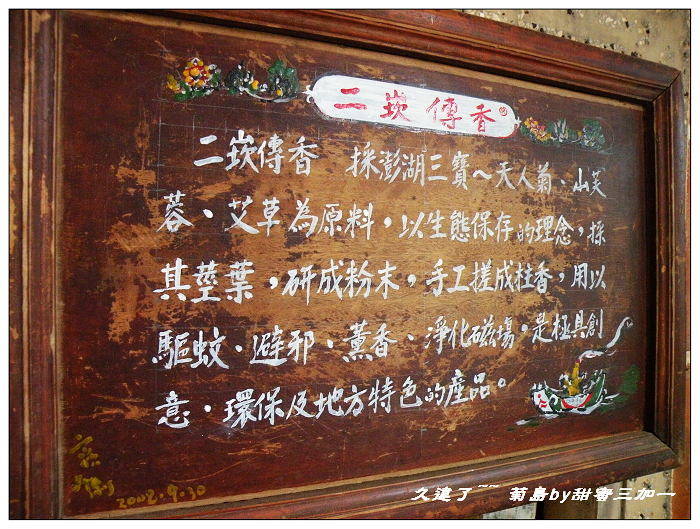 二崁傳香
二崁傳香 採澎湖三寶～天人菊、山芙
蓉、艾草為原料，以生態保存的理念，採
其莖葉，研成粉末，手工搓成柱香，用以
驅蚊、避邪、薰香、淨化磁場，是極具創
意、環保及地方特色的產品。
2002.9.30
久違了~~ 菊島by甜蜜三加一